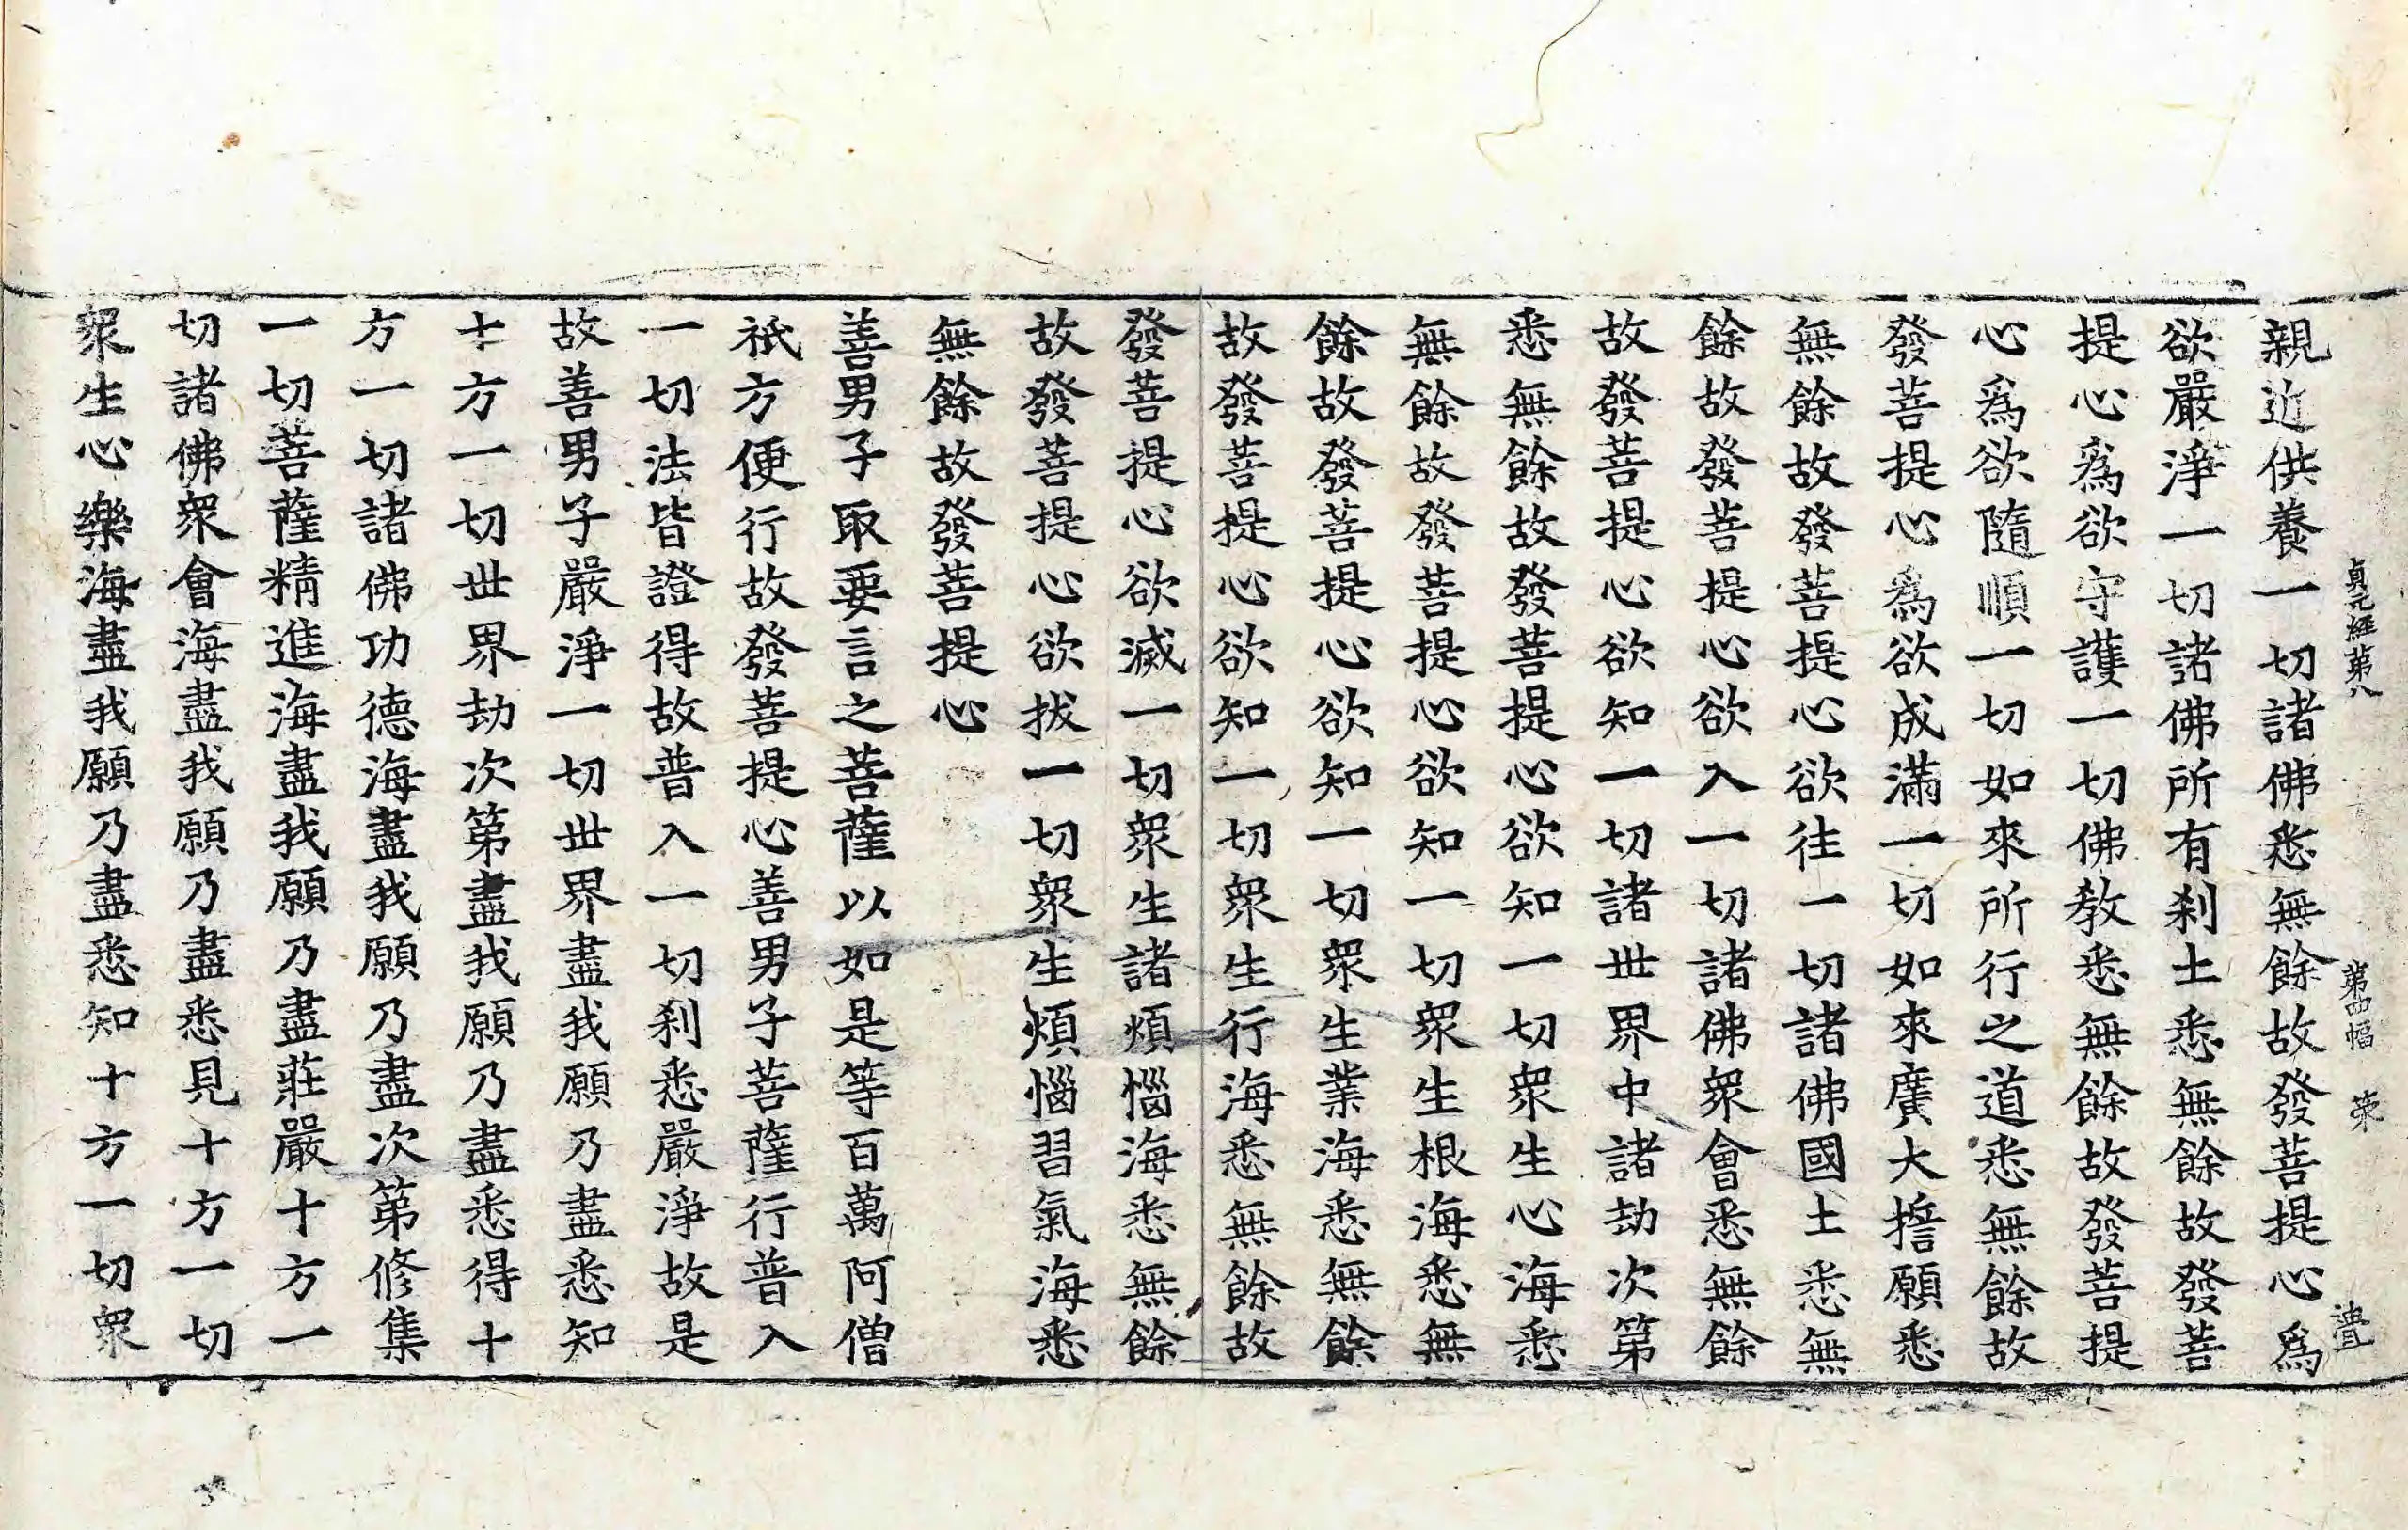 貞元經第八 第四幅 栄
親近供養一切諸佛悉無餘故發菩提心爲
欲嚴淨一切諸佛所有刹土悉無餘故發菩
提心爲欲守護一切佛教悉無餘故發菩提
心爲欲隨順一切如來所行之道悉無餘故
發菩提心爲欲成滿一切如來廣大擔願悉
無餘故發菩提心欲往一切諸佛國土悉無
餘故發菩提心欲入一切諸佛衆會悉無餘
故發菩提心欲知一切諸世界中諸劫次第
悉無餘故發菩提心欲知一切衆生心海悉
無餘故發菩提心欲知一切衆生根海悉無
餘故發菩提心欲知一切衆生業海悉無餘
故發菩提心欲知一切衆生行海悉無餘故
發菩提心欲滅一切衆生諸煩惱海悉無餘
故發菩提心欲拔一切衆生煩惱習氣海悉
無餘故發菩提心
善男子取要言之菩薩以如是等百萬阿僧
祇方便行故發菩提心善男子菩薩行普入
一切法皆證得故普入一切刹悉嚴淨故是
故善男子嚴淨一切世界盡我願乃盡悉知
十方一切世界劫次第盡我願乃盡悉得十
方一切諸佛功德海盡我願乃盡次第修集
一切菩薩精進海盡我願乃盡莊嚴十方一
切諸佛衆會海盡我願乃盡悉見十方一切
衆生心樂海盡我願乃盡悉知十方一切衆